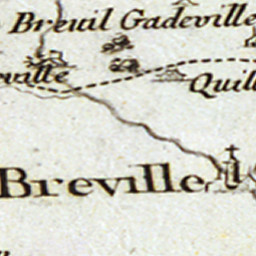 Breuil Gadeville
ville
Quill
Breville